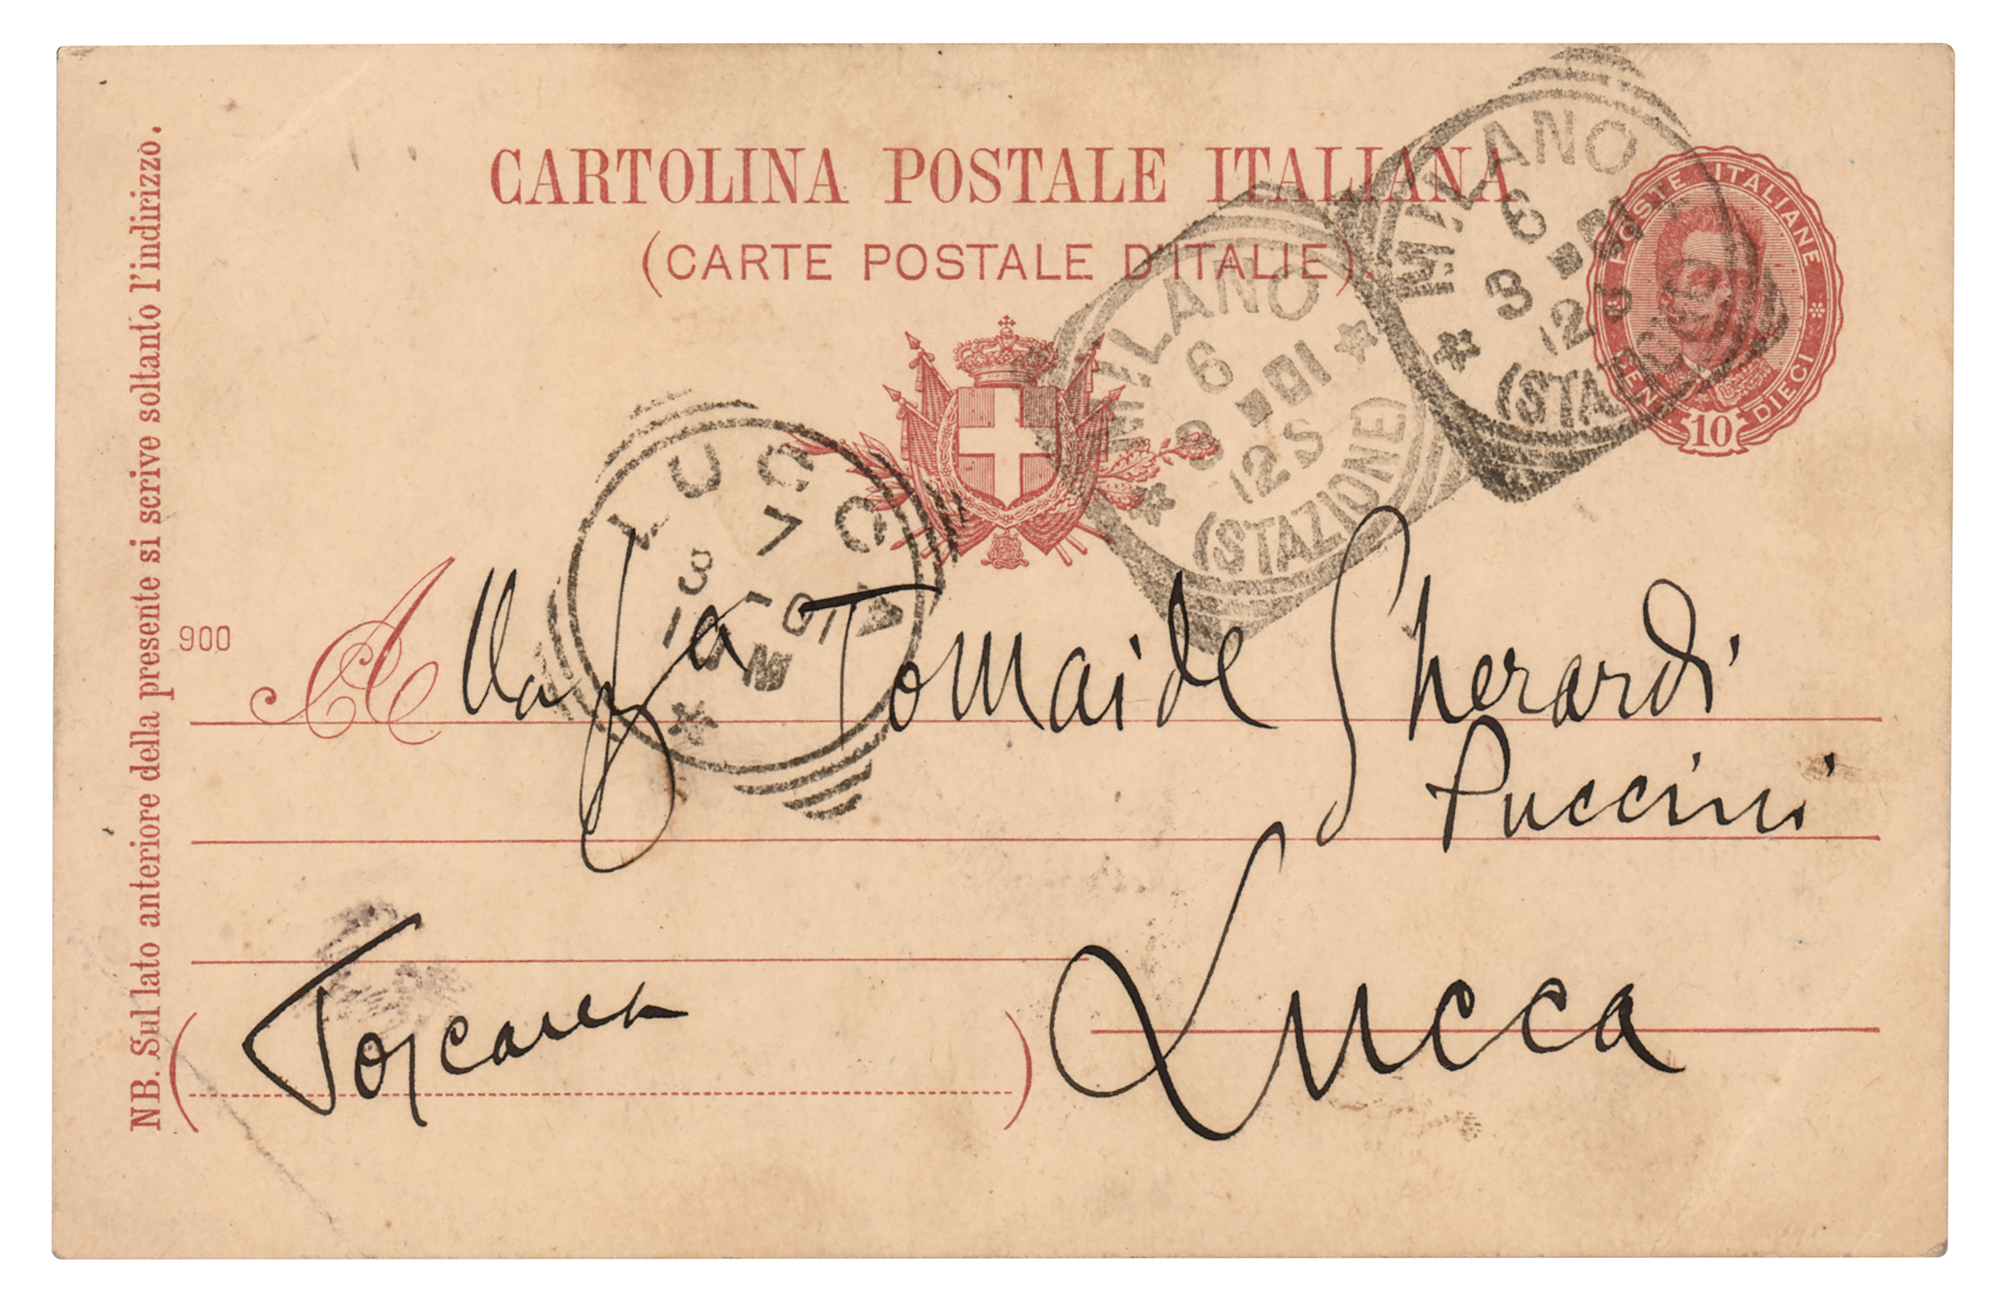 CARTOLINA POSTALE ITALIANA
(CARTE POSTALE D'ITALIE).
POSTE ITALIANE
CENT. DIECI
10
MILANO
6
3 01
12 S
(STAZIONE)
MILANO
6
3 01
12 S
(STAZIONE)
LUCCA
7
3 -01
M
900
NB. Sul lato anteriore della presente si scrive soltanto l'indirizzo.
Alla Sra Tomaide Gherardi
Puccini
Lucca
(Toscana)